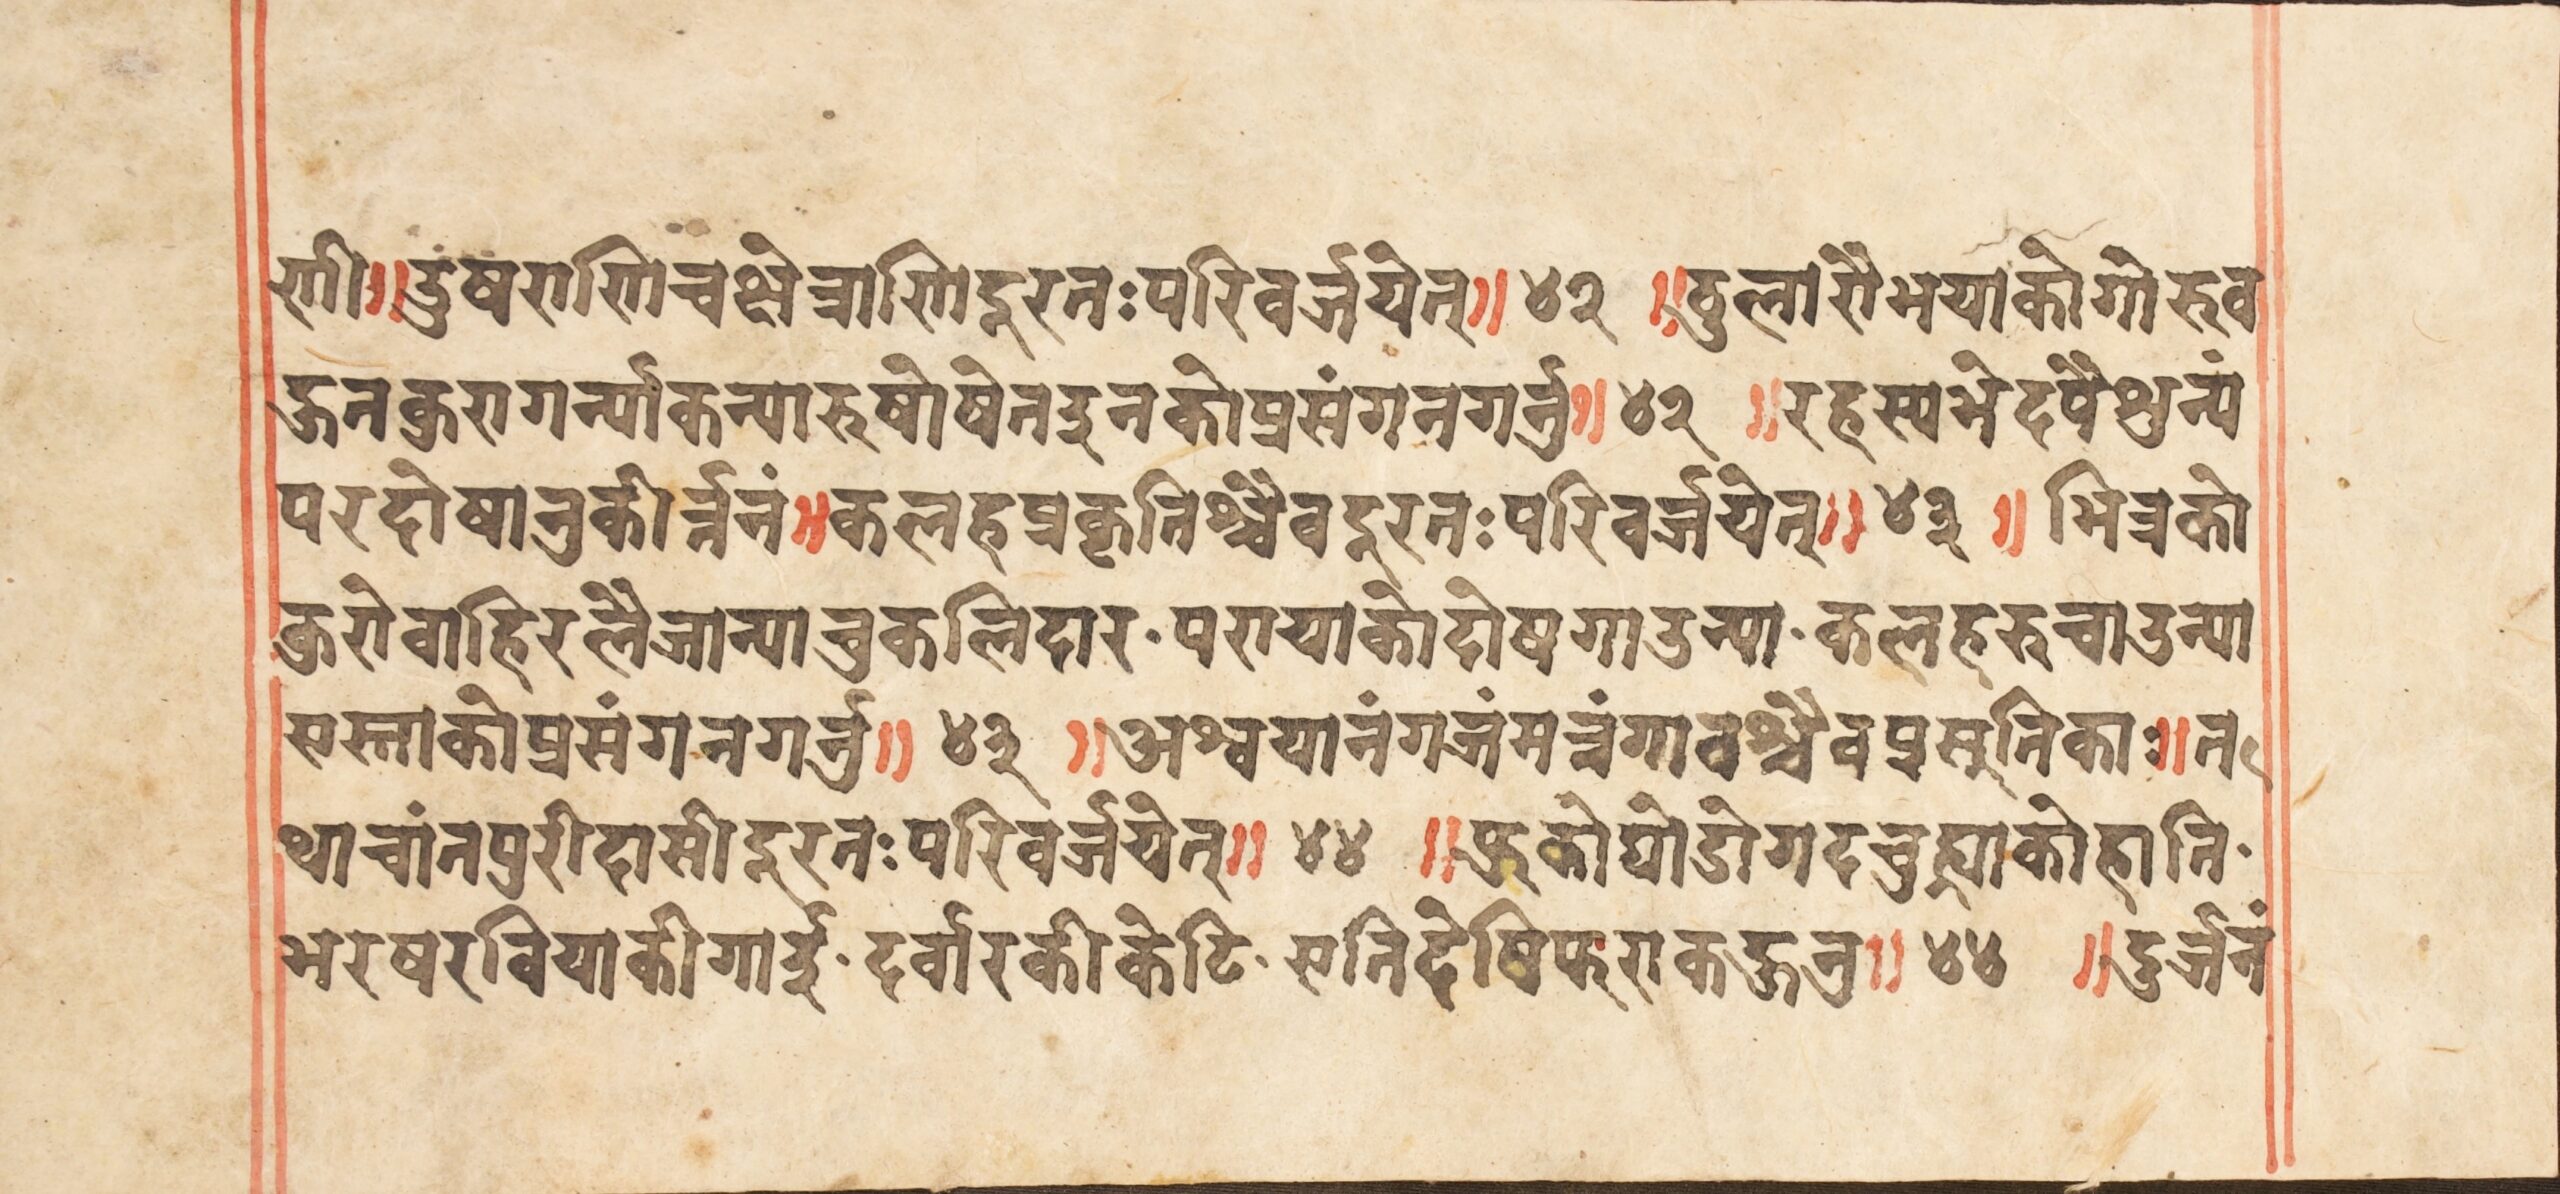 राणी॥दुषराणिचक्षेत्राणिदूरतःपरिवर्जयेत्॥४२ ॥ठुलारौभयाकोगोरुव
हुतकुरागर्न्याकन्यारुषोषेतइनकोप्रसंगनगर्नु॥४२ ॥रहस्यभेदपैशुन्यं
परदोषानुकीर्त्तनं॥कलहप्रकृतिश्चैवदूरतःपरिवर्जयेत्॥४३ ॥भित्रको
कुरोवाहिरलैजान्याचुकलिदार·परायाकोदोषगाउन्या·कलहरुचाउन्या
यस्ताकोप्रसंगनगर्नु॥४३ ॥अश्वयानंगजंमत्तंगावश्चैवप्रसूतिकाः॥त
थाचांतपुरीदासीदूरतःपरिवर्जयेत्॥४४ ॥फुकोघोडोगदचुह्याकोहाति·
भरषरवियाकीगाई·दर्वारकीकेटि·यतिदेषिफराकहुनु॥४४ ॥दुर्जनं